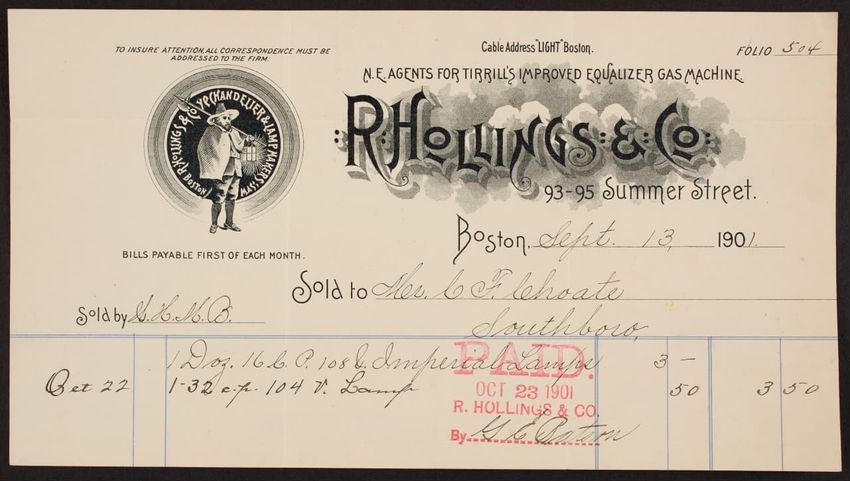 TO INSURE ATTENTION, ALL CORRESPONDENCE MUST BE
ADDRESSED TO THE FIRM.
Cable Address "LIGHT" Boston.
FOLIO 504
N.E. AGENTS FOR TIRRILL'S IMPROVED EQUALIZER GAS MACHINE
R. HOLLINGS & CO YE CHANDELIER & LAMP MAKERS
BOSTON MASS
R. HOLLINGS & CO.
93-95 Summer Street.
BILLS PAYABLE FIRST OF EACH MONTH.
Boston, Sept. 13, 1901.
Sold to Mr. C. F. Choate
Sold by G.H.M.B.
Southboro,
1 Doz. 16 C. P. 108 V. Imperial Lamps 3 –
Oct 22 1-32 c.p. 104 V. Lamp 50 3 50
PAID.
OCT 23 1901
R. HOLLINGS & CO.
By G E